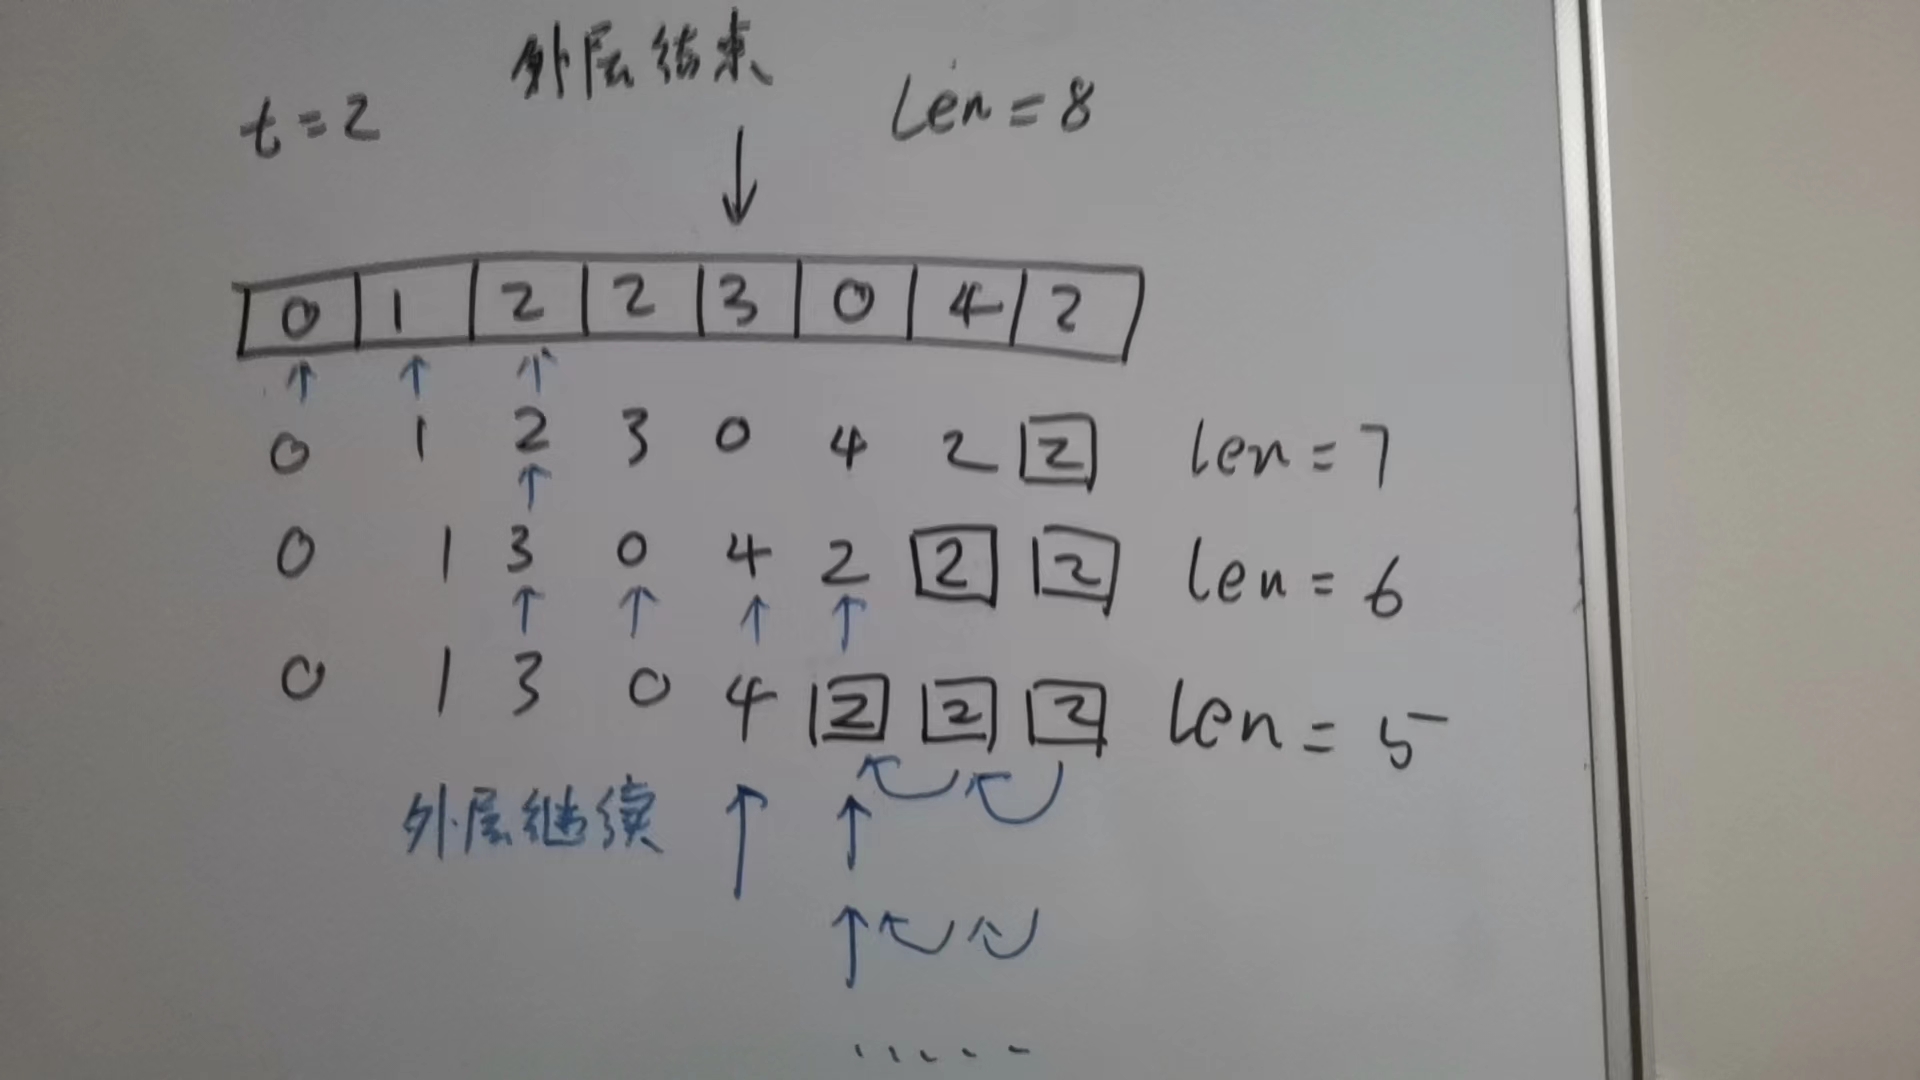 外层结束
t=2 len=8
0 1 2 2 3 0 4 2
0 1 2 3 0 4 2 2 len=7
0 1 3 0 4 2 2 2 len=6
0 1 3 0 4 2 2 2 len=5
外层继续
.....